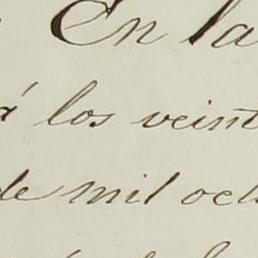 En la
á los veint
de mil oct